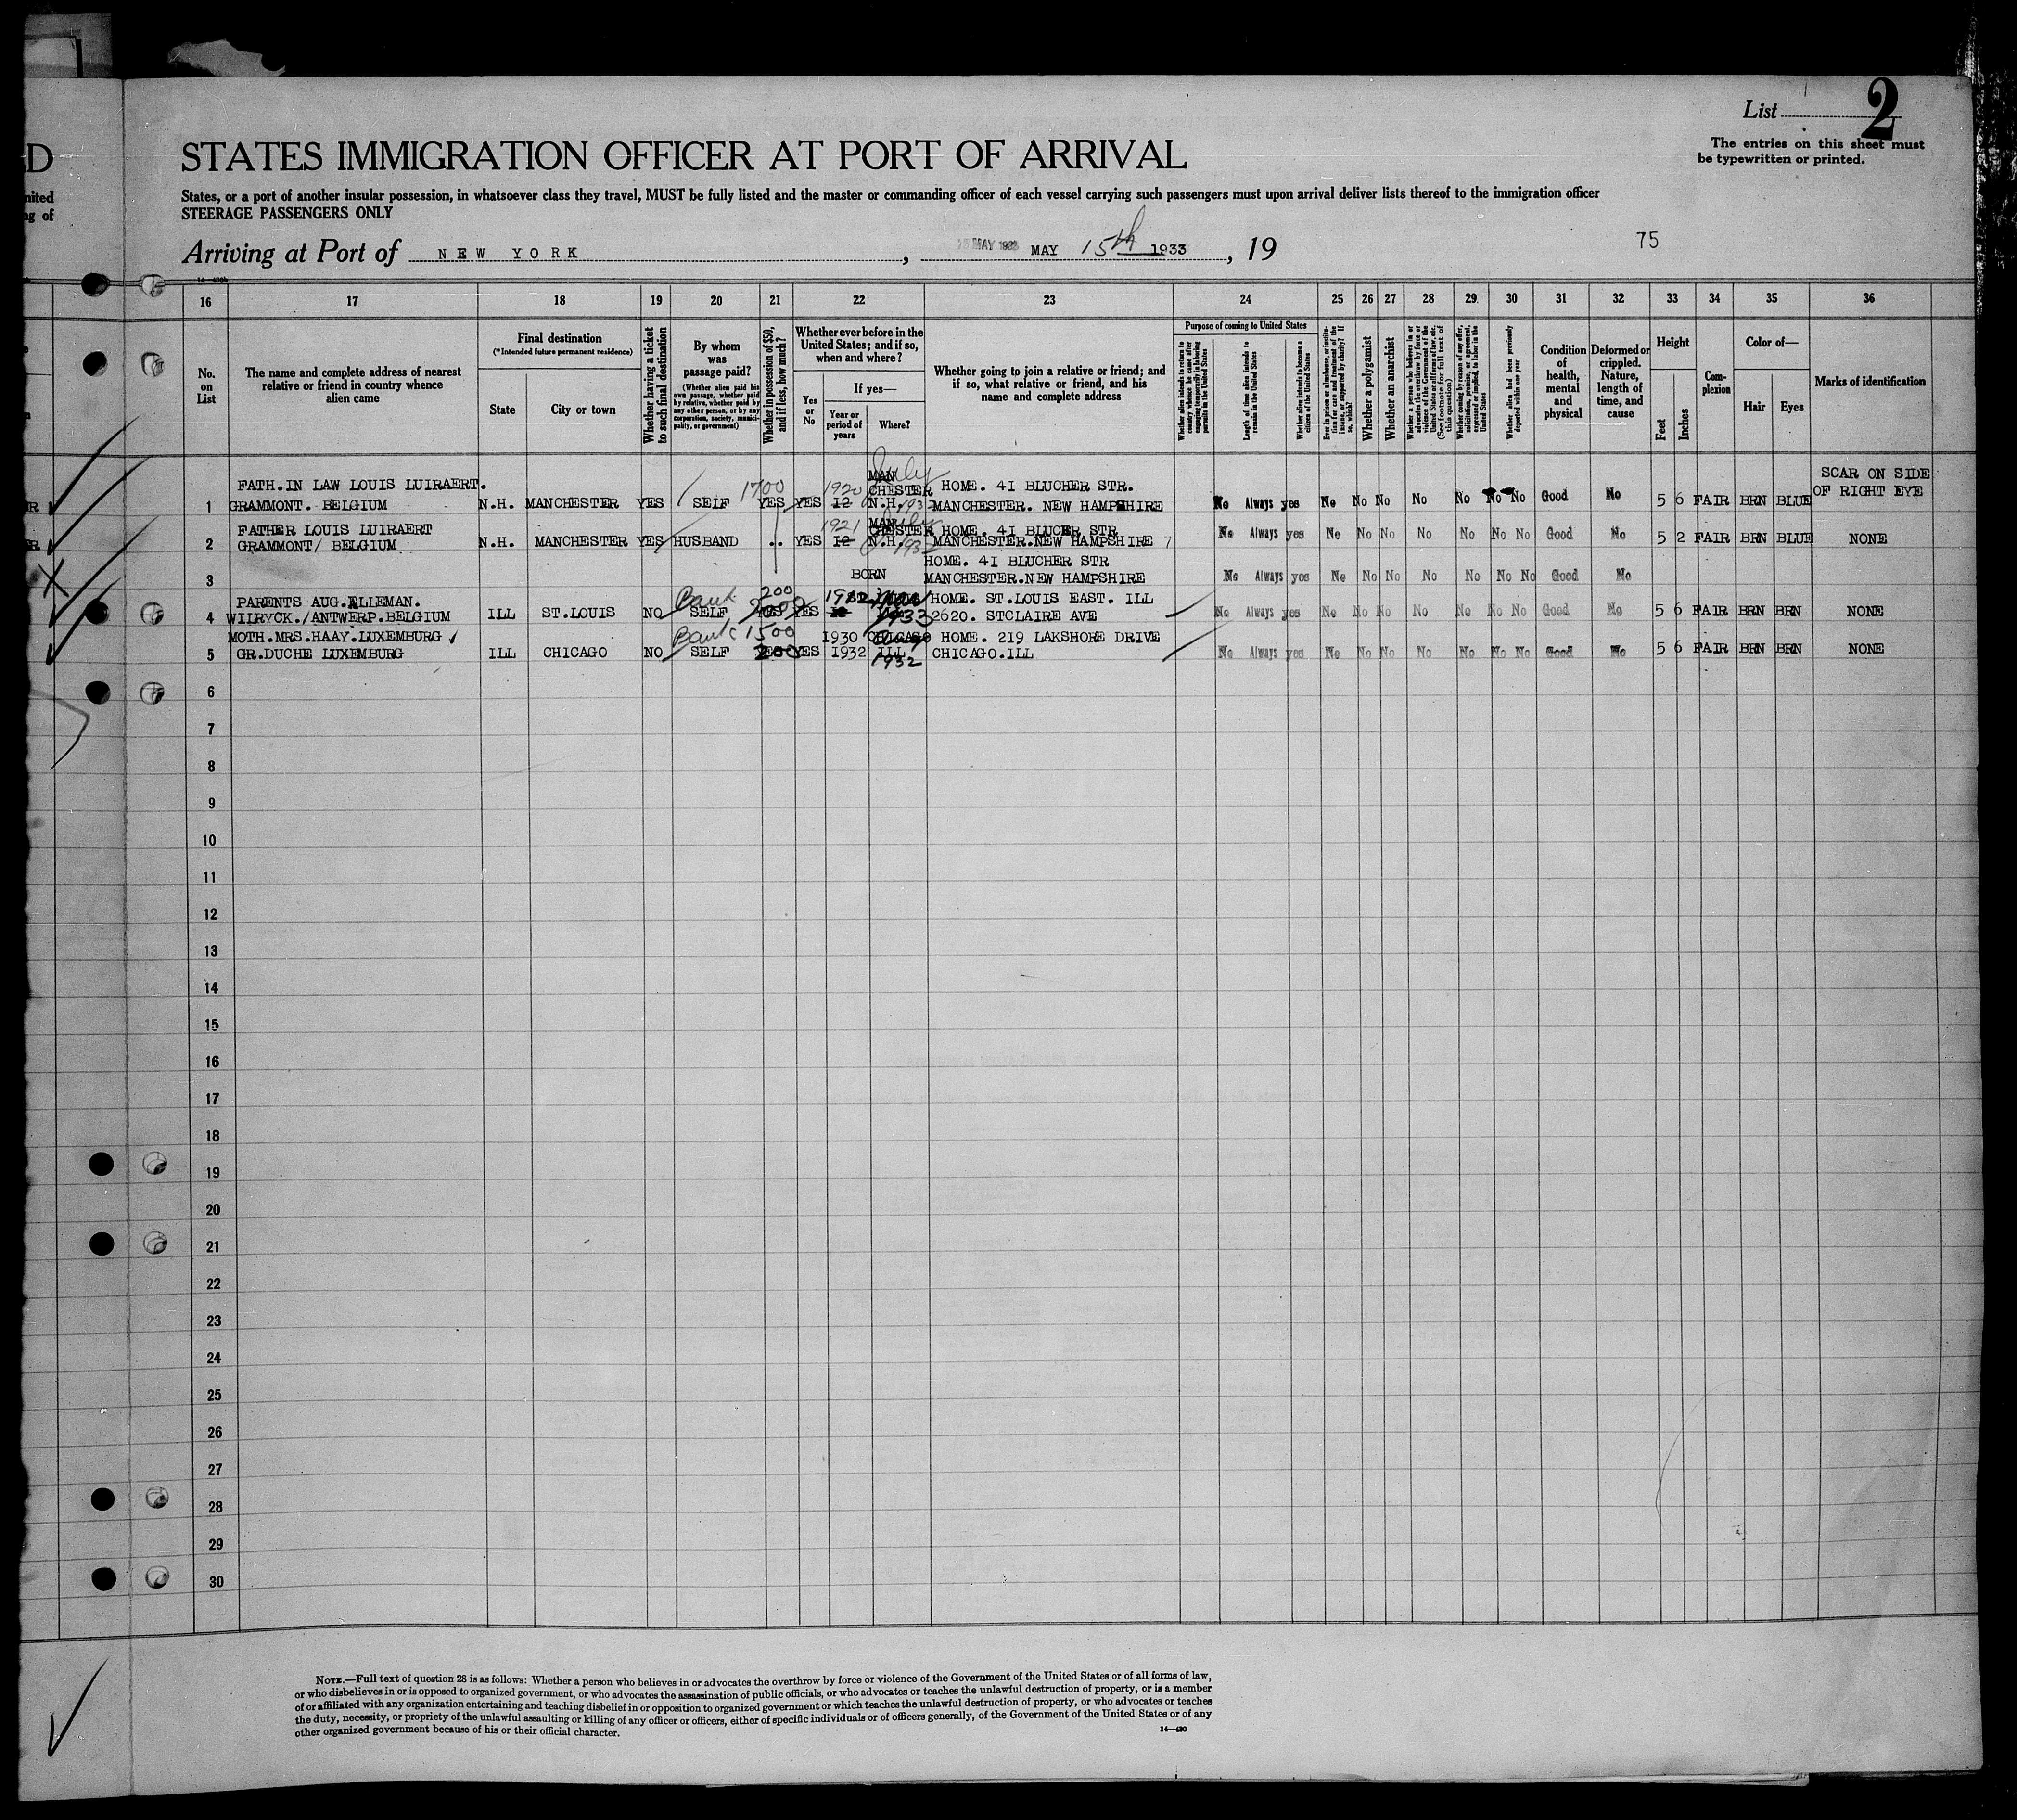 D
nited
ng of
List
2
The entries on this sheet must
be typewritten or printed.
STATES IMMIGRATION OFFICER AT PORT OF ARRIVAL
States, or a port of another insular possession, in whatsoever class they travel, MUST be fully listed and the master or commanding officer of each vessel carrying such passengers must upon arrival deliver lists thereof to the immigration officer
STEERAGE PASSENGERS ONLY
Arriving at Port of NEW YORK, MAY 15th 1933, 19
75
16 17 18 19 20 21 22 23 24 25 26 27 28 29 30 31 32 33 34 35 36
No.
on
List
The name and complete address of nearest
relative or friend in country whence
alien came
Final destination
(*Intended future permanent residence)
State
City or town
Whether having a ticket
to such final destination
By whom
was
passage paid?
(Whether alien paid his
own passage, whether paid
by relative, whether paid by
any other person, or by any
corporation, society, munici-
pality, or government)
Whether in possession of $50,
and if less, how much?
Whether ever before in the
United States; and if so,
when and where?
Yes
or
No
If yes—
Year or
period of
years
Where?
Whether going to join a relative or friend; and
if so, what relative or friend, and his
name and complete address
Purpose of coming to United States
Whether alien intends to return to
country whence he came after
engaging temporarily in laboring
pursuits in the United States
Length of time alien intends to
remain in the United States
Whether alien intends to become a
citizen of the United States
Ever in prison or almshouse, or institu-
tion for care and treatment of the
insane, or supported by charity? If
so, which?
Whether a polygamist
Whether an anarchist
Whether a person who believes in or
advocates the overthrow by force or
violence of the Government of the
United States or all forms of law, etc.
(See footnote for full text of
this question)
Whether coming by reason of any offer,
solicitation, promise, or agreement,
expressed or implied, to labor in the
United States
Whether alien had been previously
deported within one year
Condition
of
health,
mental
and
physical
Deformed or
crippled.
Nature,
length of
time, and
cause
Height
Feet
Inches
Com-
plexion
Color of—
Hair
Eyes
Marks of identification
FATH.IN LAW LOUIS LUIRAERT. 1700 1920 MAN July CHESTER HOME. 41 BLUCHER STR. SCAR ON SIDE
1 GRAMMONT. BELGIUM N.H. MANCHESTER YES SELF YES YES 12 N.H. 1932 MANCHESTER. NEW HAMPSHIRE No Always yes No No No No No No No Good No 5 6 FAIR BRN BLUE OF RIGHT EYE
FATHER LOUIS LUIRAERT 1921 MAN July CHESTER HOME. 41 BLUCHER STR
2 GRAMMONT/ BELGIUM N.H. MANCHESTER YES HUSBAND .. YES 12 N.H. 1932 MANCHESTER.NEW HAMPSHIRE No Always yes No No No No No No No Good No 5 2 FAIR BRN BLUE NONE
HOME. 41 BLUCHER STR
3 BORN MANCHESTER.NEW HAMPSHIRE No Always yes No No No No No No No Good No
PARENTS AUG.ELLEMAN. Bank 200 HOME. ST.LOUIS EAST. ILL
4 WILRYCK./ANTWERP.BELGIUM ILL ST.LOUIS NO SELF YES YES 1933 2620. STCLAIRE AVE No Always yes No No No No No No No Good No 5 6 FAIR BRN BRN NONE
MOTH.MRS.HAAY.LUXEMBURG Bank 1500 1930 CHICAGO HOME. 219 LAKSHORE DRIVE
5 GR.DUCHE LUXEMBURG ILL CHICAGO NO SELF 200 YES 1932 ILL 1932 CHICAGO.ILL No Always yes No No No No No No No Good No 5 6 FAIR BRN BRN NONE
6
7
8
9
10
11
12
13
14
15
16
17
18
19
20
21
22
23
24
25
26
27
28
29
30
NOTE.—Full text of question 28 is as follows: Whether a person who believes in or advocates the overthrow by force or violence of the Government of the United States or of all forms of law,
or who disbelieves in or is opposed to organized government, or who advocates the assassination of public officials, or who advocates or teaches the unlawful destruction of property, or is a member
of or affiliated with any organization entertaining and teaching disbelief in or opposition to organized government or which teaches the unlawful destruction of property, or who advocates or teaches
the duty, necessity, or propriety of the unlawful assaulting or killing of any officer or officers, either of specific individuals or of officers generally, of the Government of the United States or of any
other organized government because of his or their official character.
14—430